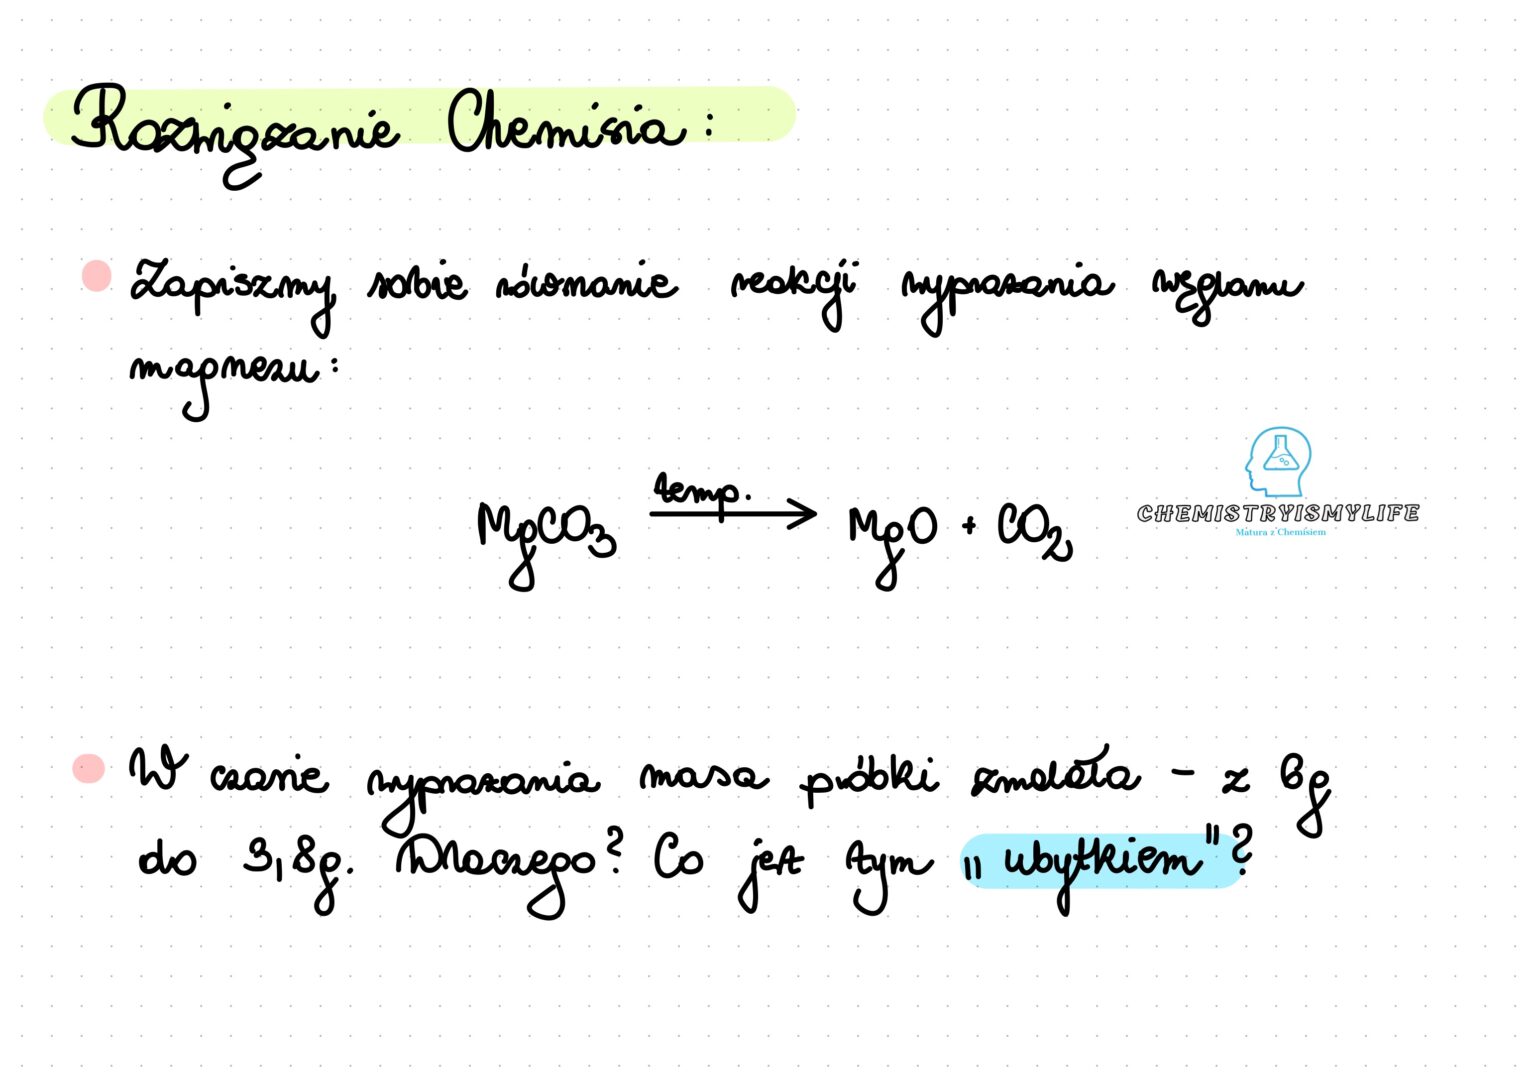 Rozwiązanie Chemisia:
Zapiszmy sobie równanie reakcji wyprażania węglanu
magnezu:
temp.
MgCO₃ → MgO + CO₂
CHEMISTRYISMYLIFE
Matura z Chemisiem
W czasie wyprażania masa próbki zmalała - z 6g
do 3,8g. Dlaczego? Co jest tym „ubytkiem"?